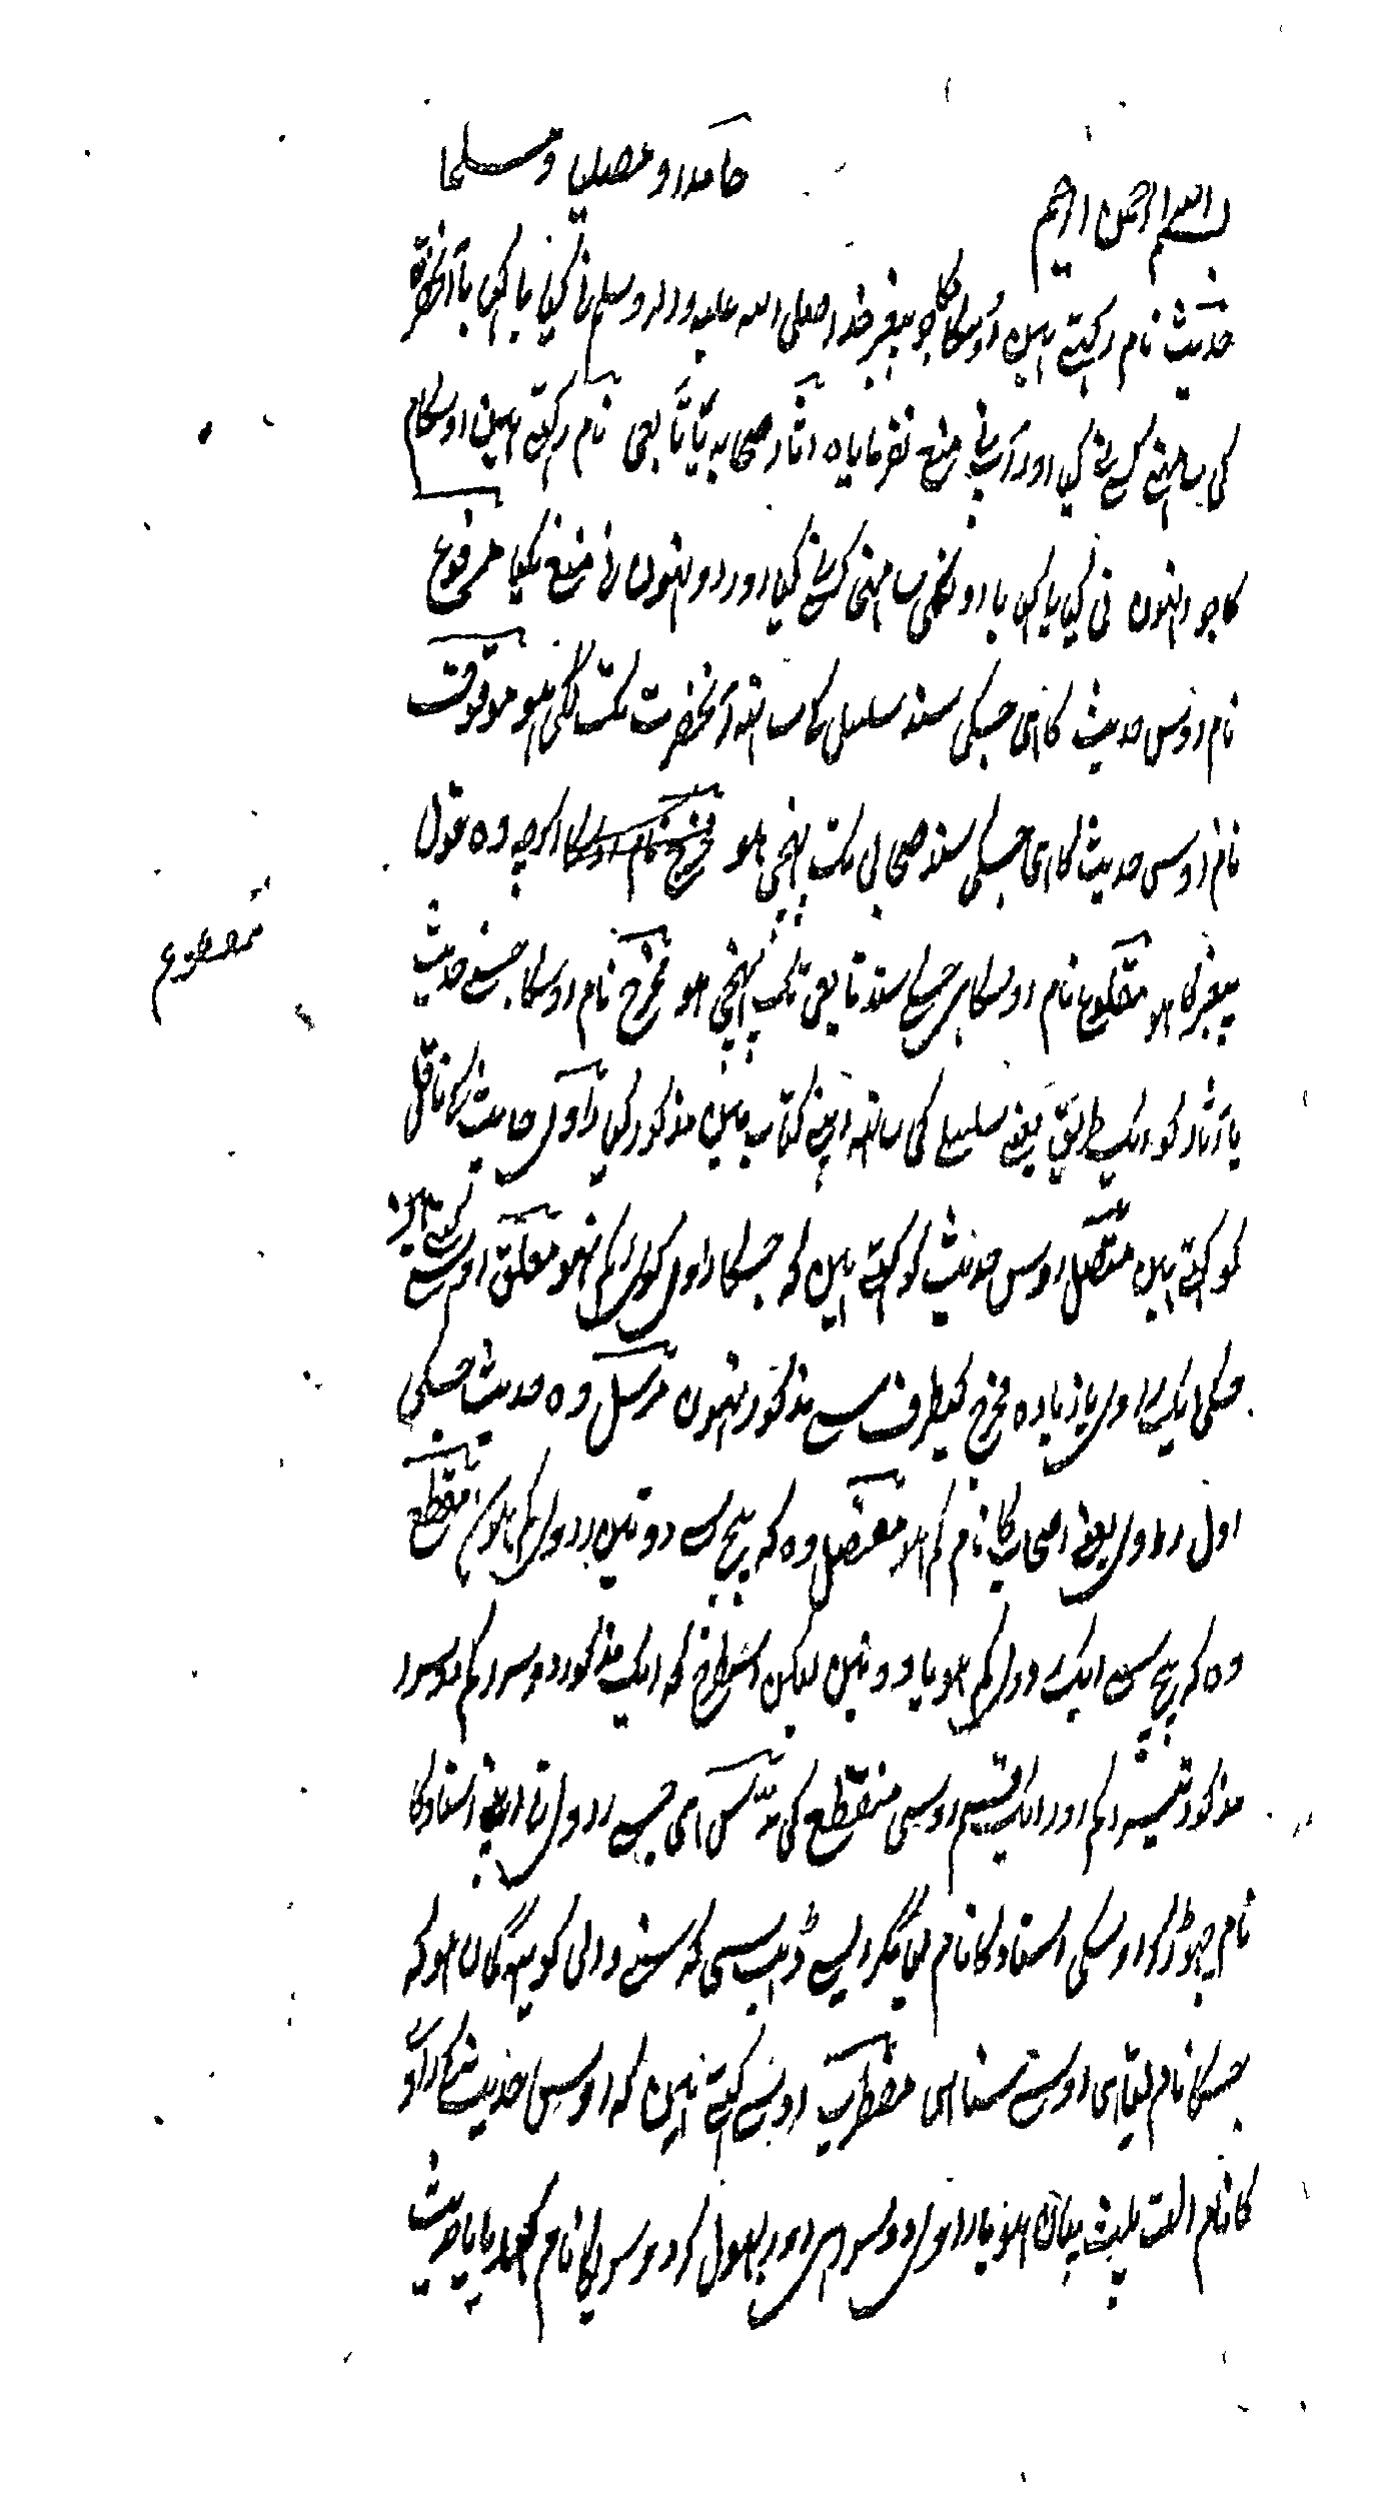 بسم الله الرحمن الرحيم
حامدا و مصليا و مسلما
حديث نام رکهتے ہين اوسکا جو پيغمبر خدا صلی الله عليه و اله وسلم نا کيا يا کہا يا آنحضرت
کی سامهنے کسی نے کيا اور آپ نے منع نفرمايا ہ آثار صحابہ يا تابعی نام رکهتے ہين اوسکا
کا جو اونهون نی کيا يا کہا يا اونکی سامهنی کسی نے کيا اور اونهون نے منع نکيا مرفوع
نام اوس حديث کا ہی جسکی سند سلسلی کا ساتهہ آنحضرت تک لگی ہو موقوف
نام اوس حديث کا ہی جسکی سند صحابی تک پہنچی ہو مخرج نام اوسکا اگرچہ وہ قول
پيغمبر کا ہو مقطوع نام اوسکا ہر جسکا سند تابعی تک پہنچی ہو مخرج نام اوسکا جسنے حديث
مقطوع
يا آثار کو ايک طريق يعنے سلسلے کی ساتهہ اپنے کتاب مين مذکور کيا راوی حديث کا ناقل
کو کہتے ہين متصل اوس حديث کو کہتے ہين کہ جسکا راوی کوئی کم نہو معلق اوسے
کہتے ہين
جسکی ايک راوی يا زيادہ مخرج کيطرف سے مذکور نہون مرسل وہ حديث جسکی
اول راوی يعنے اصحاب کا نام کم ہو معضل وہ کہ بيچ سے دو تين راوی کم ہون منقطع
وہ کہ بيچ سے ايک راوی کم ہو يا دو تين ليکن اسطرح کہ ايک مذکور دوسرا کم دوسرا
مذکور تيسرا کم اور ايک قسم اوسی منقطع کی مدلس ہی جسے راوی نا اپنے استاد کا
نام چهوڑ کر اوسکی استاد کا نام ليا مگر ايسے ڈهب سی کہ سننے والی کو يہہ گمان ہو کہ
جسکا نام ليا ہی اوسے سنا ہی مضطرب اوسے کہتے ہين کہ اوسی حديث کا راوی
کا نام الٹ پلٹ بيان ہو يا راوی دوسرا ہی اور بهول کر دوسريکا نام کہديا يا حديث